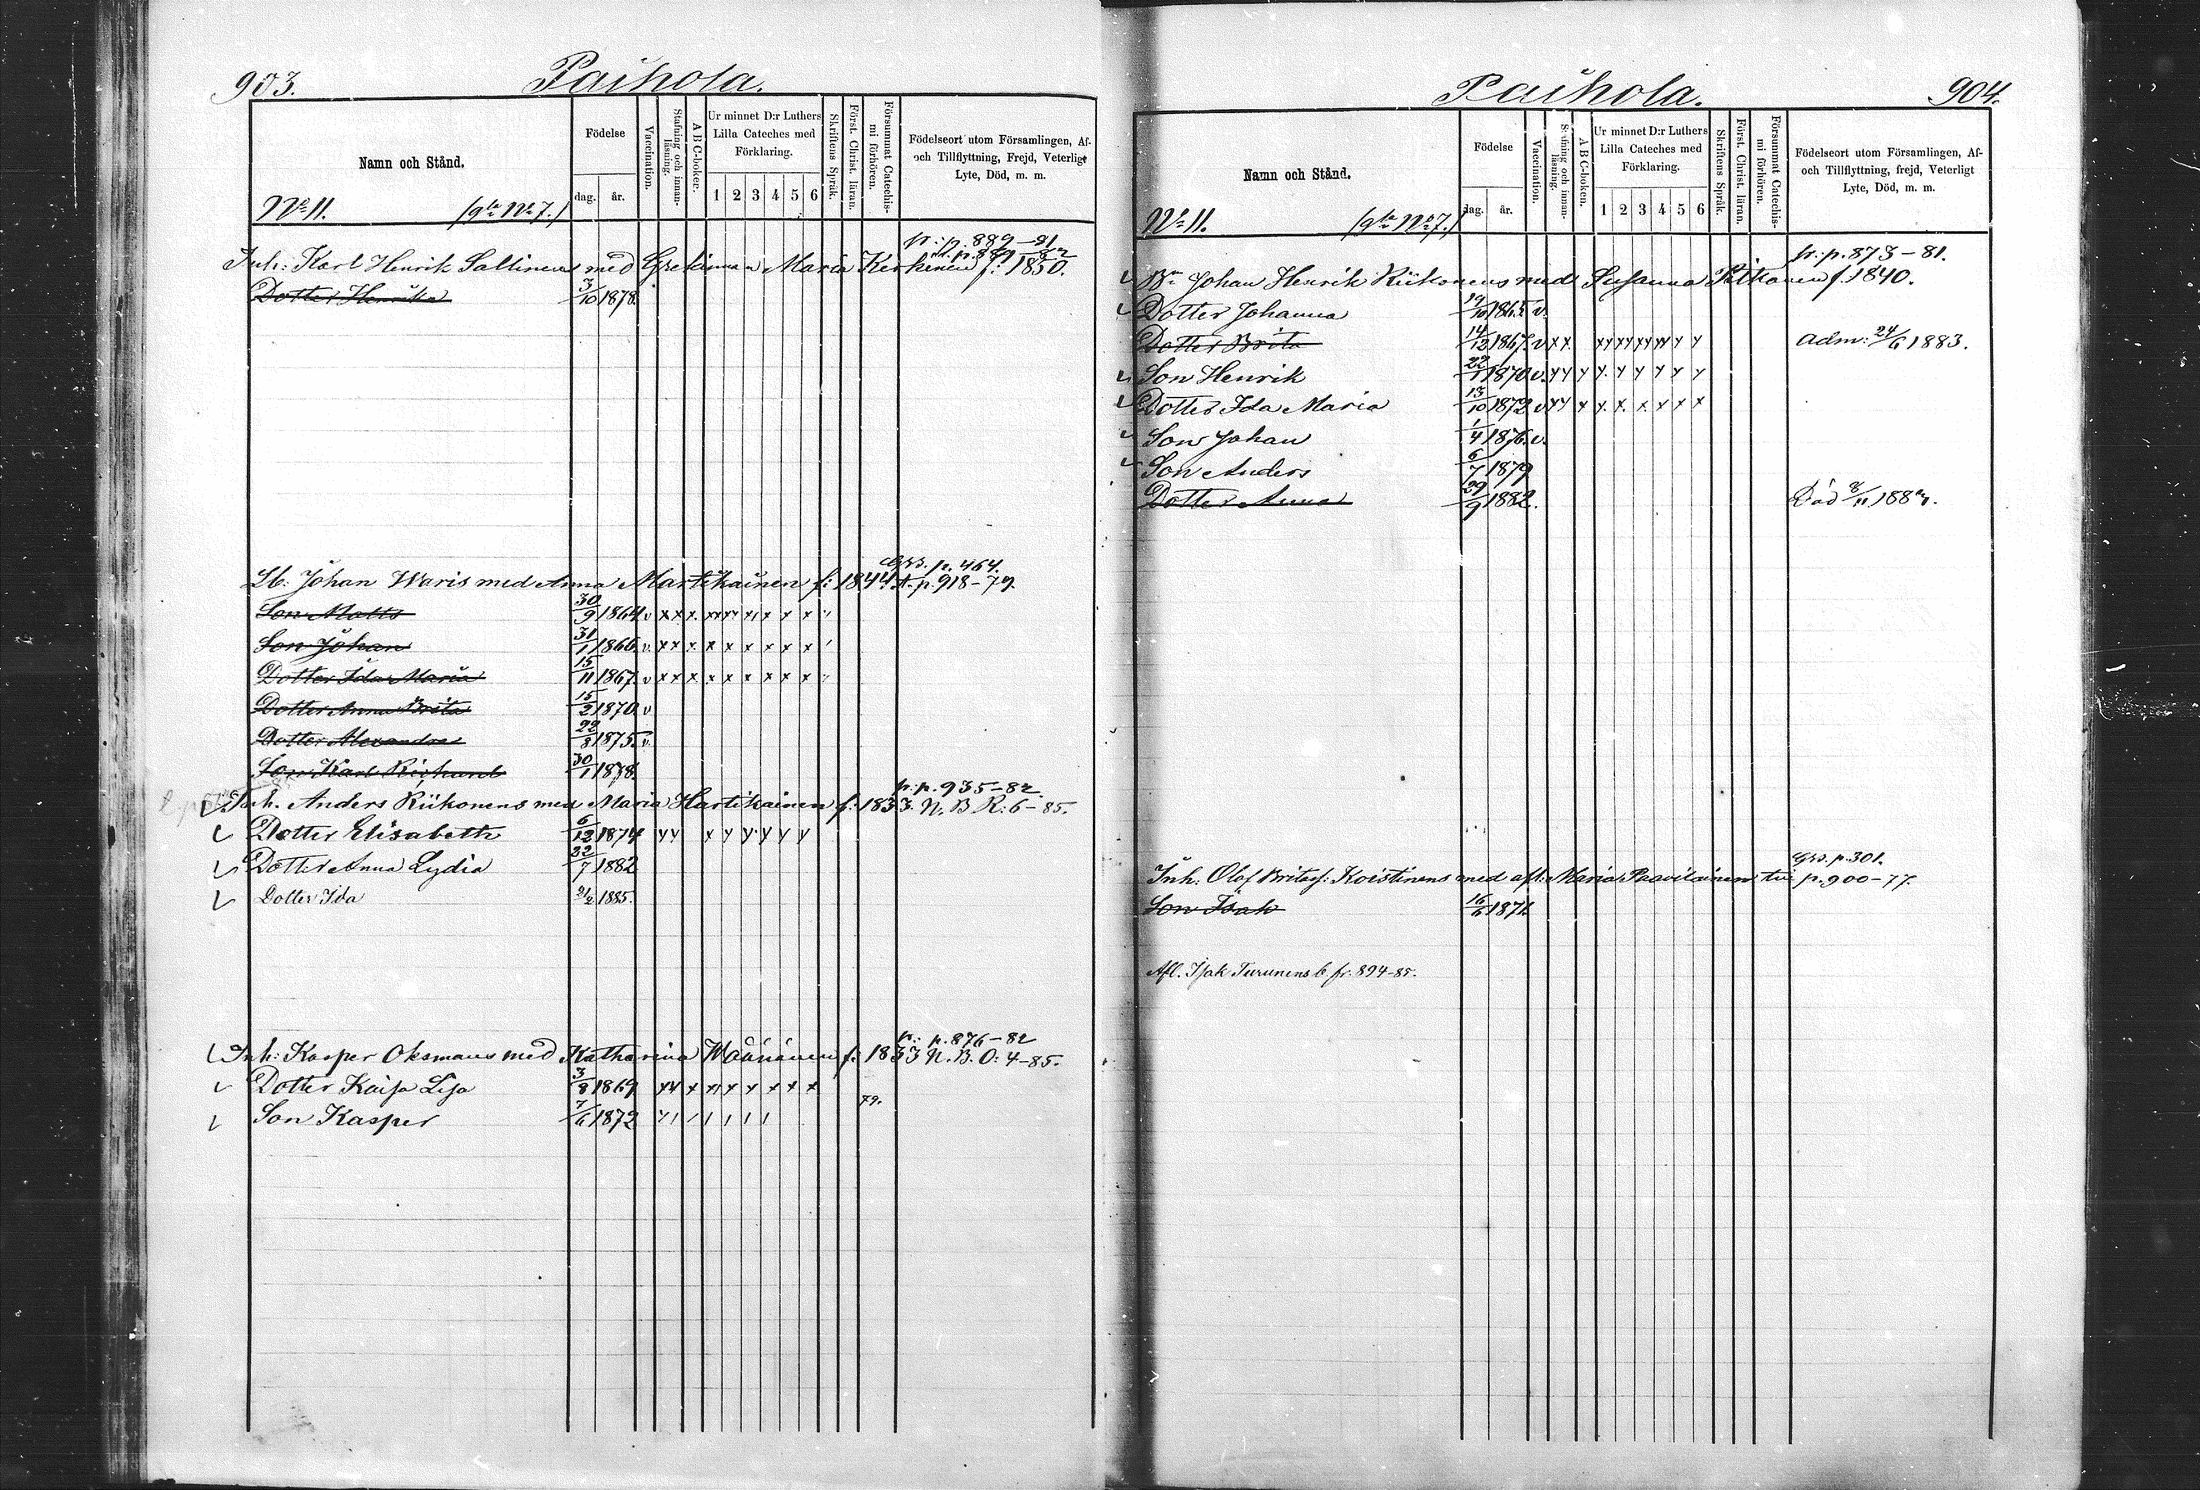 903. Paihola.
Namn och Stånd.
Födelse
dag. år.
Vaccination.
Stafning och innan-läsning.
ABC-boken.
Ur minnet D:r Luthers
Lilla Cateches med
Förklaring.
1 2 3 4 5 6
Skriftens Språk.
Först. Christ. läran.
Försummat Catechis-mi förhören.
Födelseort utom Församlingen, Af-
och Tillflyttning, Frejd, Veterligt
Lyte, Död, m. m.
No 11. /gla No 7./
fr: p. 889-81
Inh: Karl Henrik Sallinens med Gretänman Maria Kerkinen f: 1850.
Dotter Henrika 3/10 1878.
Grs. p. 464.
Lb: Johan Waris med Anna Martikainen f: 1844. fr. p. 918-79.
Son Matts 30/9 1864 v xx x
Son Johan 31/1 1866. v. xx x x x x x x x
Dotter Ida Maria 15/11 1867. v xx x x x x x x x
Dotter Anna Brita 15/2 1870 v
Dotter Alexandra 22/8 1875. v.
Son Karl Richard 30/1 1878.
fr. p. 935-82.
Inh. Anders Riikonens med Maria Hartikainen f: 1833. N. B R: 6-85.
Dotter Elisabeth 6/12 1874
Dotter Anna Lydia 22/7 1882
Dotter Ida 21/2 1885.
fr: p. 876-82
Inh: Kasper Oksmans med Katharina Määnänen f: 1833 N. B. O: 4-85.
Dotter Kaisa Lisa 3/8 1869
79.
Son Kasper 7/6 1872
Paihola. 904.
Namn och Stånd.
Födelse
dag. år.
Vaccination.
Stafning och innan-läsning.
ABC-boken.
Ur minnet D:r Luthers
Lilla Cateches med
Förklaring.
1 2 3 4 5 6
Skriftens Språk.
Först. Christ. läran.
Försummat Catechis-mi förhören.
Födelseort utom Församlingen, Af-
och Tillflyttning, frejd, Veterligt
Lyte, Död, m. m.
No 11. /gla No 7./
fr: p. 873-81.
Bn Johan Henrik Riikonens med Susanna Pitkänen f. 1840.
Dotter Johanna 19/10 1865 v.
Dotter Brita 14/12 1867. v xx Adm: 24/6 1883.
Son Henrik 22/1 1870 v.
Dotter Ida Maria 13/10 1872 v
Son Johan 1/4 1876. v.
Son Anders 6/7 1879
Dotter Anna 29/9 1882. Död 8/11 188
Grs. p. 301.
Inh: Olof Britasf: Koistinens med afl: Maria Paavilainen till p. 900-77.
Son Isak 16/6 1871.
Afl. Isak Turunens b. fr. 894-85.